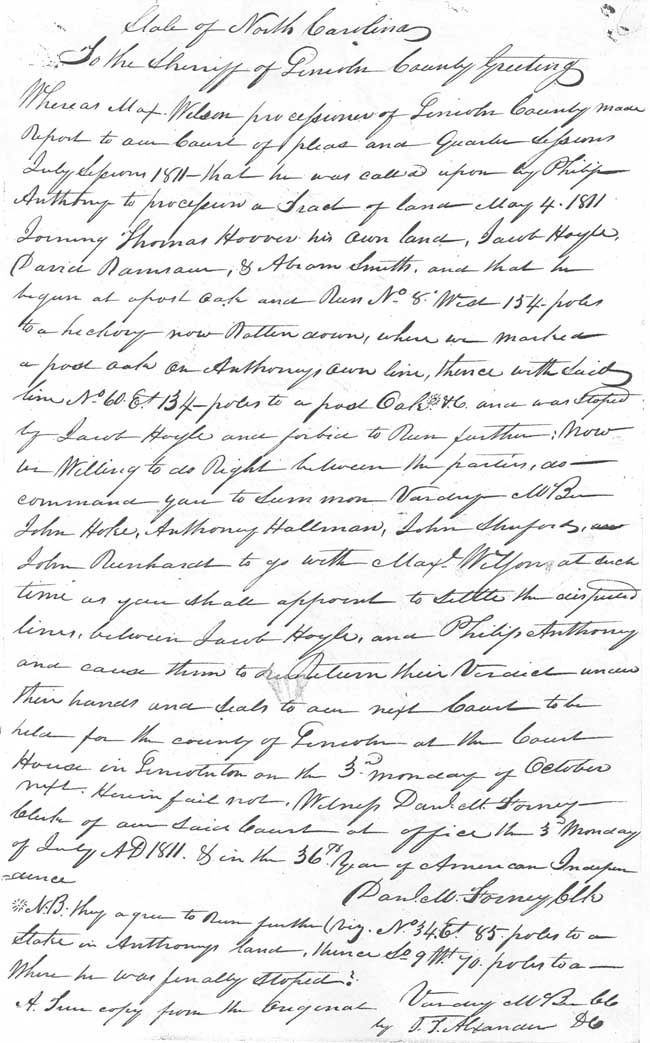 State of North Carolina
To the Sherriff of Lincoln County Greeting
Whereas Max. Wilson processioner of Lincoln County made
Report to our Court of pleas and Quarter Sessions
July Sessions 1811 - that he was called upon by Philip
Anthony to procession a Tract of land May 4. 1811
Joining Thomas Hoover his own land, Jacob Hoyle,
David Ramsaur, & Abram Smith, and that he
begun at a post oak and Run No. 8. Wed 154 - poles
to a hickory now Rotten down, where we marked
a post oak on Anthoneys own line, thence with Said
line No. 60. Et. 134 - poles to a post Oak &C. and was Stoped
by Jacob Hoyle and forbid to Run further; Now
we Willing to do Right between the parties, do -
command you to Summon Vardry McBee
John Hoke, Anthoney Hallman, John Shuford, and
John Reinhardt to go with Maxl. Wilson at such
time as you shall appoint to Settle the disputed
lines, between Jacob Hoyle, and Philip Anthoney
and cause them to Return their Verdict under
their hands and Seals to our next Court to be
held for the county of Lincoln at the Court
House in Lincolnton on the 3rd monday of October
next. Herein fail not, Witness Danl. M. Forney
Clerk of our Said Court at office the 3d Monday
of July AD 1811. & in the 36th Year of American Indepen
=dence
Danl. M. Forney Clk
N.B. they agree to Run further (Viz. No. 34. Et. 85 - poles to a
Stake in Anthoneys land, thence So. 9 Wt. 70. poles to a -
Where he was finally Stoped:
A True copy from the Original Vardry McBee CC
by J. F. Alexander DC